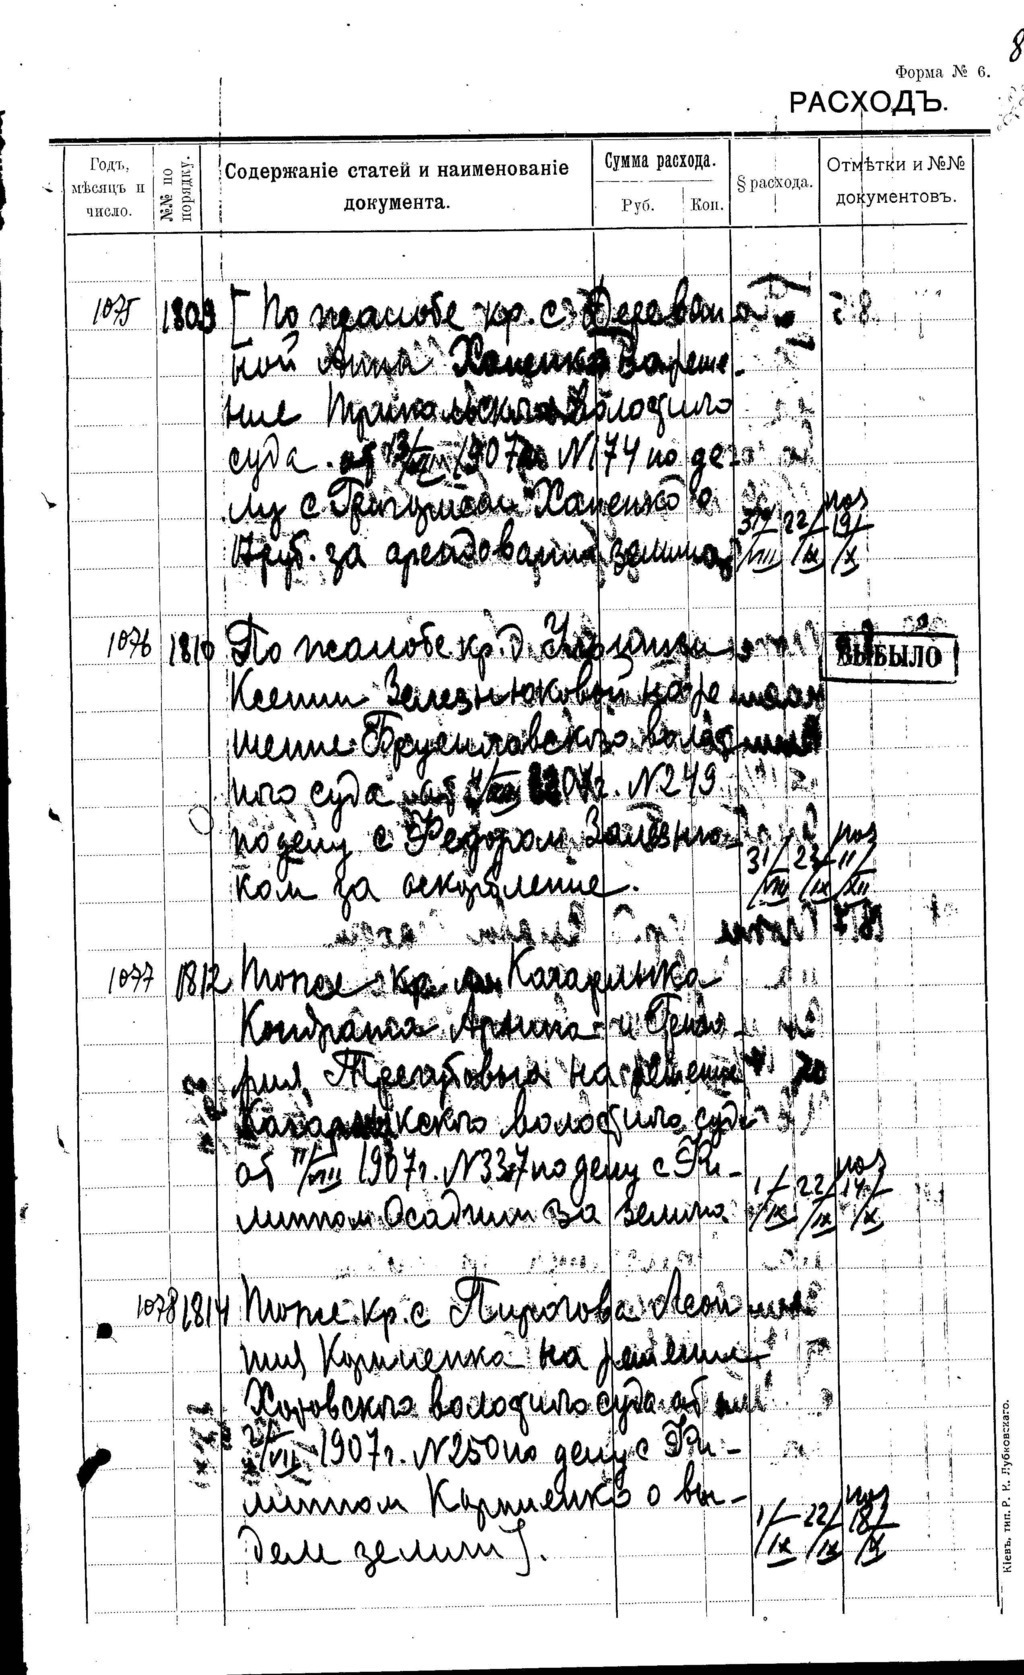 8
Форма № 6.
РАСХОДЪ.
Годъ, мѣсяцъ и число.
№№ по порядку.
Содержаніе статей и наименованіе документа.
Сумма расхода.
Руб.
Коп.
§ расхода.
Отмѣтки и №№ документовъ.
1075 1809 [ По жалобе кр. с. Деревян
ной Анны Хапенко на реше-
ние Трипольского волостного
суда от 13/VIII 1907 г. N 174 по де-
лу с Григорием Хапенко о
17 руб. за арендование земли
31/VIII 22/IX 19/X
1076 1810 По жалобе кр. д.
ВЫБЫЛО
Ксении Железнюковой на ре
шение волост
ного суда от г. N 249
по делу с Федором Зализню-
ком за оскорбление.
31/VIII 22/IX 11/XII
1077 1812 Тоже кр. м. Кагарлыка
Кондрата и Григо-
рия на решение
Кагарлыкского волостного суда
от 11/VIII 1907 г. N 337 по делу с Фи-
липпом Осадчим за землю
1/IX 22/IX 17/X
1078 1814 Тоже кр. с. Пирогова Леон
тия Корниенка на решение
Хотовского волостного суда от
2/VII 1907 г. N 250 по делу с Фи-
липпом Корниенко о вы-
деле земли ].
1/IX 22/IX 18/X
Кіевъ, тип. Р. К. Лубковскаго.